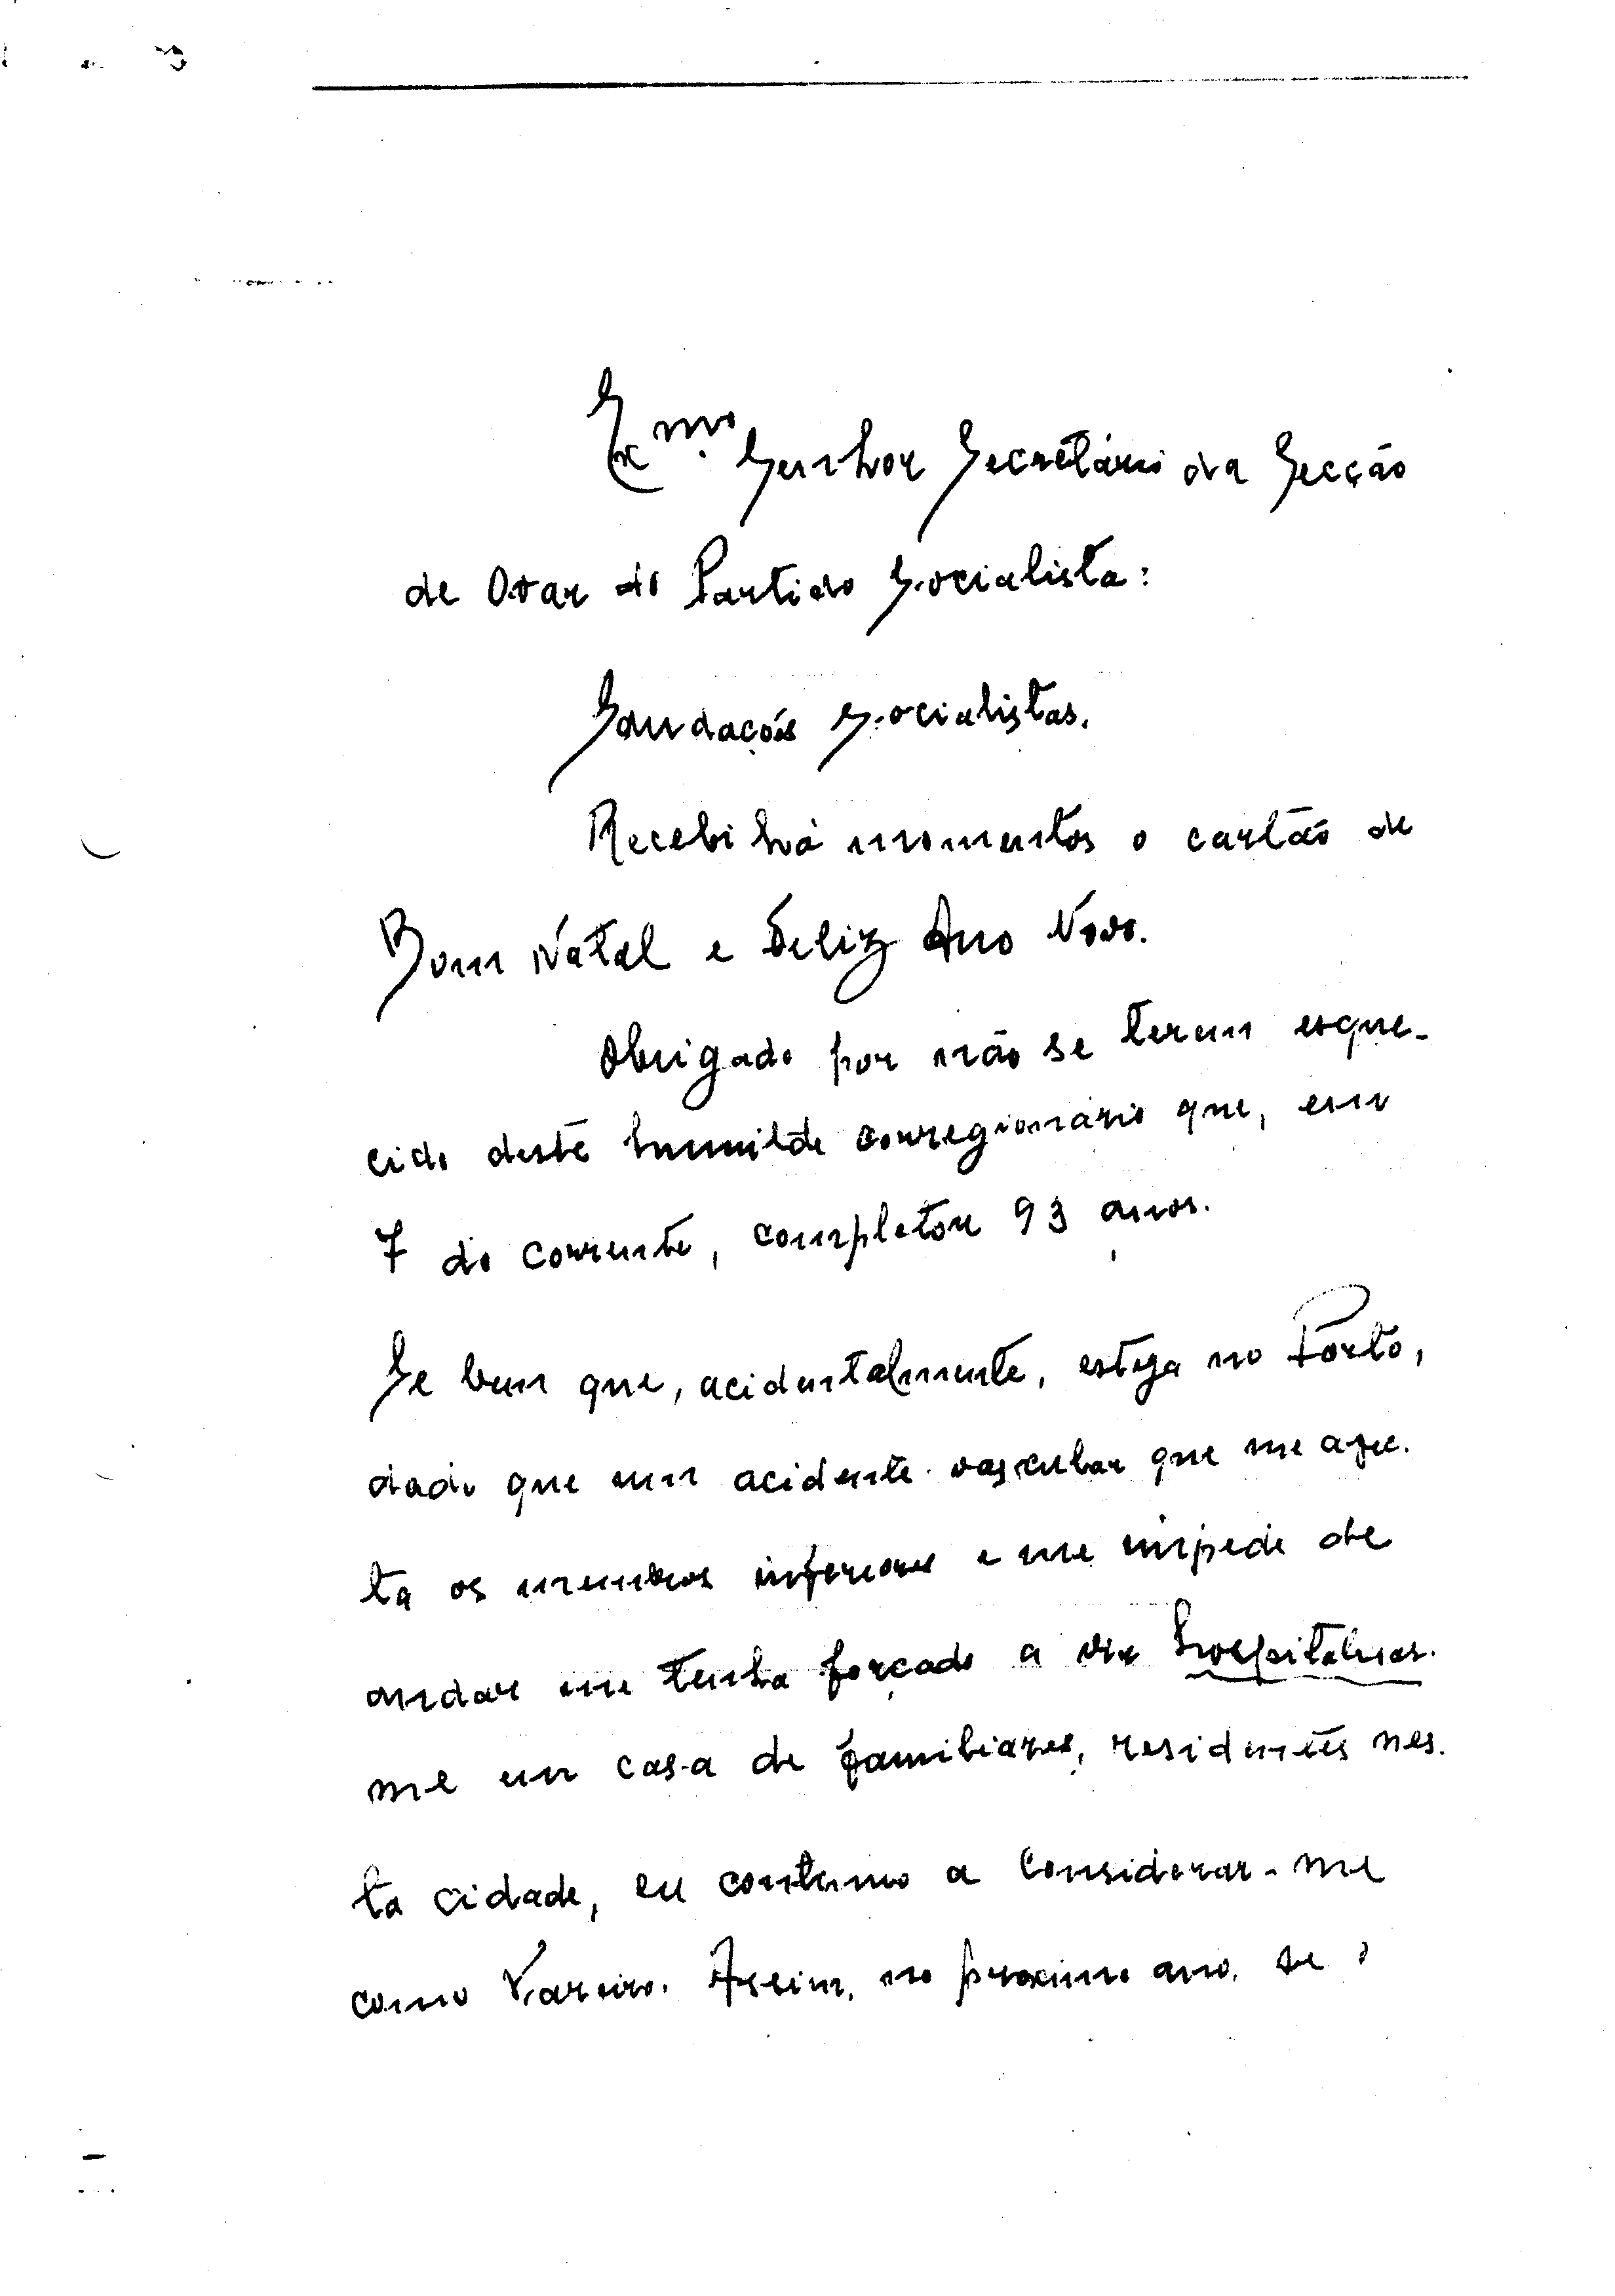 Exmo. Senhor Secretário da Secção
de Ovar do Partido Socialista:
Saudações Socialistas.
Recebi há momentos o cartão de
Bom Natal e Feliz Ano Novo.
Obrigado por não se terem esque-
cido deste humilde corregionário que, em
7 do corrente, completou 93 anos.
Se bem que, acidentalmente, esteja no Porto,
dado que um acidente vascular que me afec-
ta os membros inferiores e me impede de
andar me tenha forçado a vir hospitalizar-
me em casa de familiares, residentes nes-
ta cidade, eu continuo a considerar-me
como Vareiro. Assim, no proximo ano, se